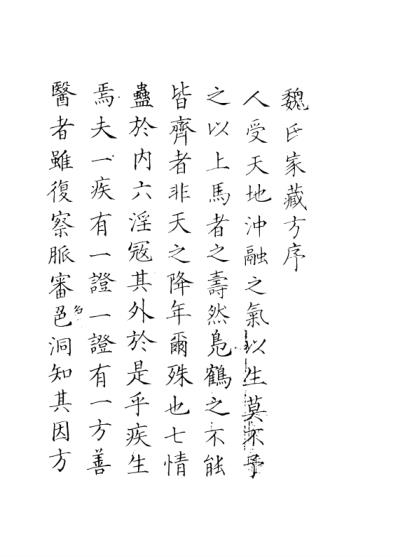 魏氏家藏方序
人受天地沖融之氣以生莫不予
之以上馬者之壽然鳧鶴之不能
皆齊者非天之降年爾殊也七情
蠱於内六淫寇其外於是乎疾生
焉夫一疾有一證一證有一方善
醫者雖復察脈審邑洞知其因方